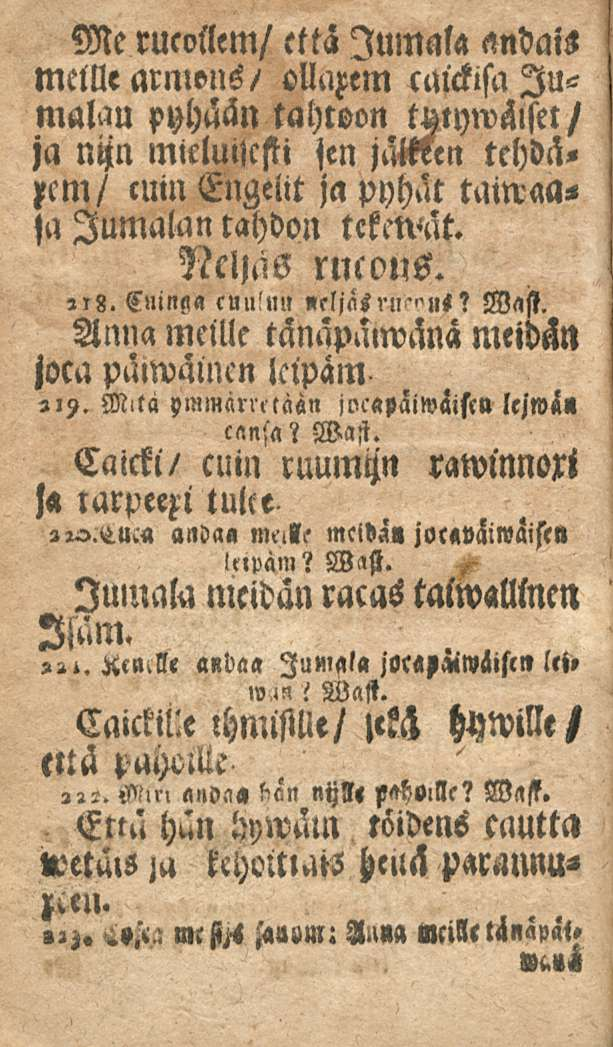 Me rucoilem/ että Jumala andais
meille armons/ ollaxem caickisa Ju-
malan pyhään tahtoon tytywäiset/
ja nijn mieluisesti sen jälkeen tehdä-
xem/ cuin Engelit ja pyhät taiwaa-
sa Jumalan tahdon tekewät.
Neljäs rucous.
218. Cuinga cuuluu neljäs rucous? Wast.
Anna meille tänäpäiwänä meidän
joca päiwäinen leipäm.
219. Mitä ymmärretään jocapäiwäisen lejwän
cansa? Wast.
Caicki/ cuin ruumijn rawinnoxi
ja tarpeexi tulee.
220. Cuca andaa meille meidän jocapäiwäisen
leipäm? Wast.
Jumala meidän racas taiwallinen
Isäm.
221. Kenelle andaa Jumala jocapäiwäisen lei-
wän? Wast.
Caickille ihmisille/ sekä hywille/
että pahoille.
222. Mixi andaa hän nijlle pahoille? Wast.
Että hän hywäin töidens cautta
wetäis ja kehoittais heitä parannu-
xeen.
223. Cosca me sijs sanom: Anna meille tänäpäi-
wänä